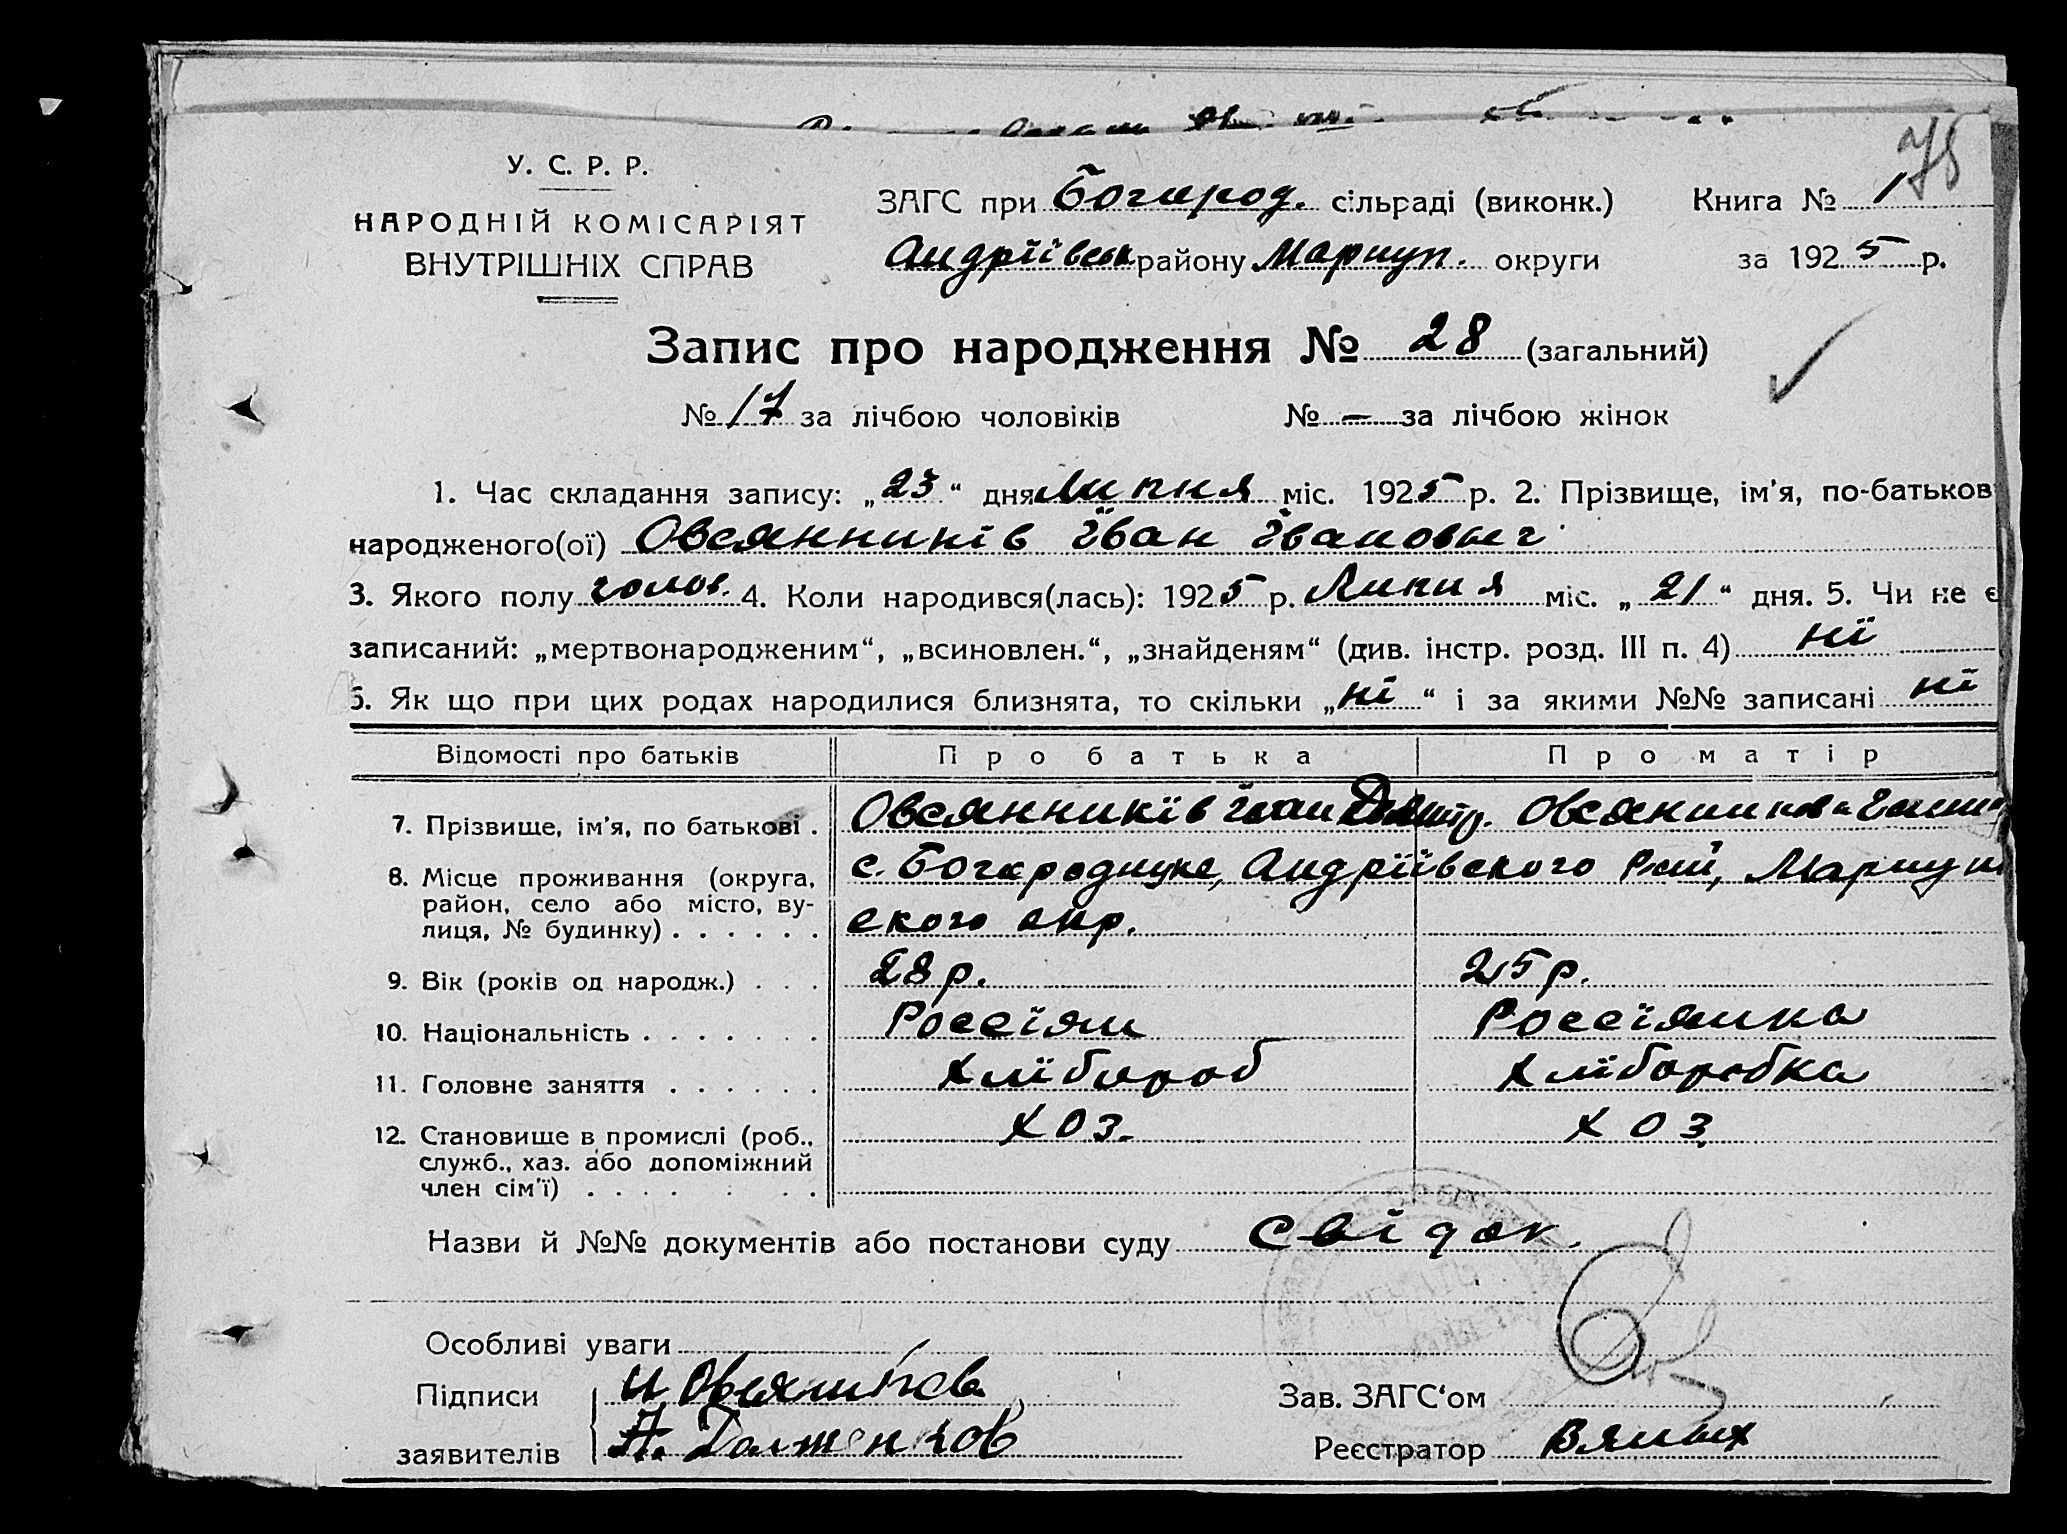 75
У. С. Р. Р.
НАРОДНІЙ КОМІСАРІЯТ
ВНУТРІШНІХ СПРАВ
ЗАГС при Богарод. сільраді (виконк.) Книга № 1
Андріївськ району Мариуп. округи за 1925 р.
Запис про народження № 28 (загальний)
№ 17 за лічбою чоловіків № — за лічбою жінок
1. Час складання запису: „23“ дня Липня міс. 1925 р. 2. Прізвище, ім'я, по-батьков
народженого(ої) Овсянників Іван Іванович
3. Якого полу чолов. 4. Коли народився(лась): 1925 р. Липня міс. „21“ дня. 5. Чи не є
записаний: „мертвонародженим“, „всиновлен.“, „знайденям“ (див. інстр. розд. III п. 4) ні
6. Як що при цих родах народилися близнята, то скільки „ні“ і за якими №№ записані ні
Відомості про батьків Про батька Про матір
7. Прізвище, ім'я, по батькові . Овсянників Іван Дмитр. Овсянникова
8. Місце проживання (округа, район, село або місто, вулиця, № будинку) . . . . . . с. Богародицке, Андріївского Рай, Мариуп
ского окр.
9. Вік (років од народж.) . . . 28 р. 25 р.
10. Національність . . . . . . . Россіян Россіянка
11. Головне заняття . . . . . . Хлібороб Хліборобка
12. Становище в промислі (роб., служб., хаз. або допоміжний член сім'ї) . . . . . . . хоз. хоз
Назви й №№ документів або постанови суду свідок.
Особливі уваги
Підписи заявителів И Овсянников
А. Должеников
Зав. ЗАГС‘ом
Реєстратор Вялых